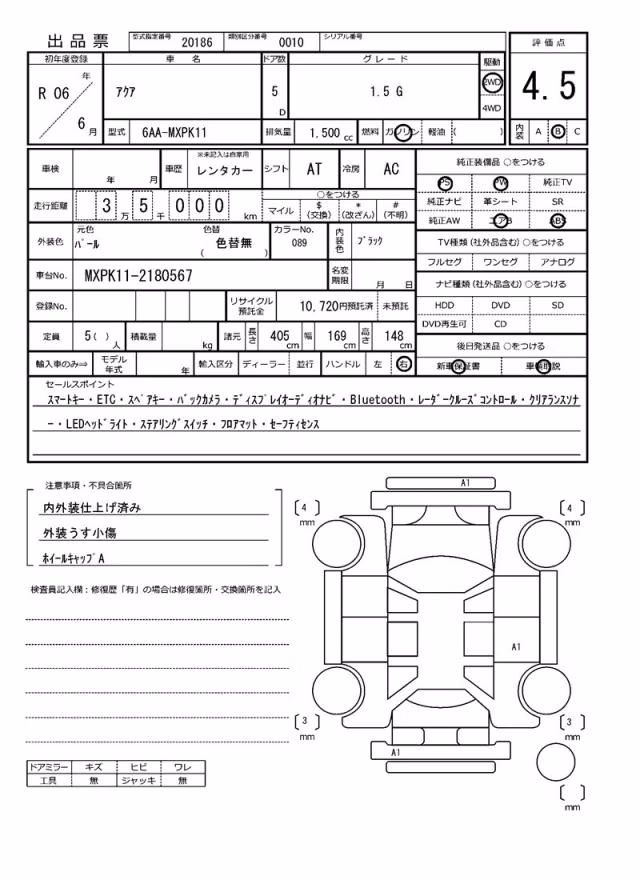 出品票 型式指定番号 20186 類別区分番号 0010 シリアル番号
初年度登録 車名 ドア数 グレード 駆動 評価点
R 06 年 6 月 アクア 5 D 1.5 G 2WD 4WD 4.5
型式 6AA-MXPK11 排気量 1.500 cc 燃料 ガソリン 軽油 ( ) 内装 A B C
車検 年 月 車歴 ※未記入は自家用 レンタカー シフト AT 冷房 AC 純正装備品 ○をつける
PS PW 純正TV
走行距離 3 万 5 千 0 0 0 km ○をつける マイル $ (交換) * (改ざん) # (不明) 純正ナビ 革シート SR
純正AW エアB ABS
外装色 元色 パール 色替 色替無 ( ) カラーNo. 089 内装色 ブラック TV種類 (社外品含む) ○をつける
フルセグ ワンセグ アナログ
車台No. MXPK11-2180567 名変期限 月 日 ナビ種類 (社外品含む) ○をつける
登録No. リサイクル預託金 10,720円預託済 未預託 HDD DVD SD
DVD再生可 CD
定員 5 ( ) 人 積載量 kg 諸元 長さ 405 cm 幅 169 cm 高さ 148 cm 後日発送品 ○をつける
輸入車のみ⇒ モデル年式 年 輸入区分 ディーラー 並行 ハンドル 左 右 新車保証書 車輌取説
セールスポイント
スマートキー・ETC・スペアキー・バックカメラ・ディスプレイオーディオナビ・Bluetooth・レーダークルーズコントロール・クリアランスソナ
ー・LEDヘッドライト・ステアリングスイッチ・フロアマット・セーフティセンス
注意事項・不具合箇所
内外装仕上げ済み
外装うす小傷
ホイールキャップA
検査員記入欄：修復歴「有」の場合は修復箇所・交換箇所を記入
A1
[ 4 ] mm [ 4 ] mm
A1
[ 3 ] mm [ 3 ] mm
A1
[ ] mm
ドアミラー キズ ヒビ ワレ
工具 無 ジャッキ 無